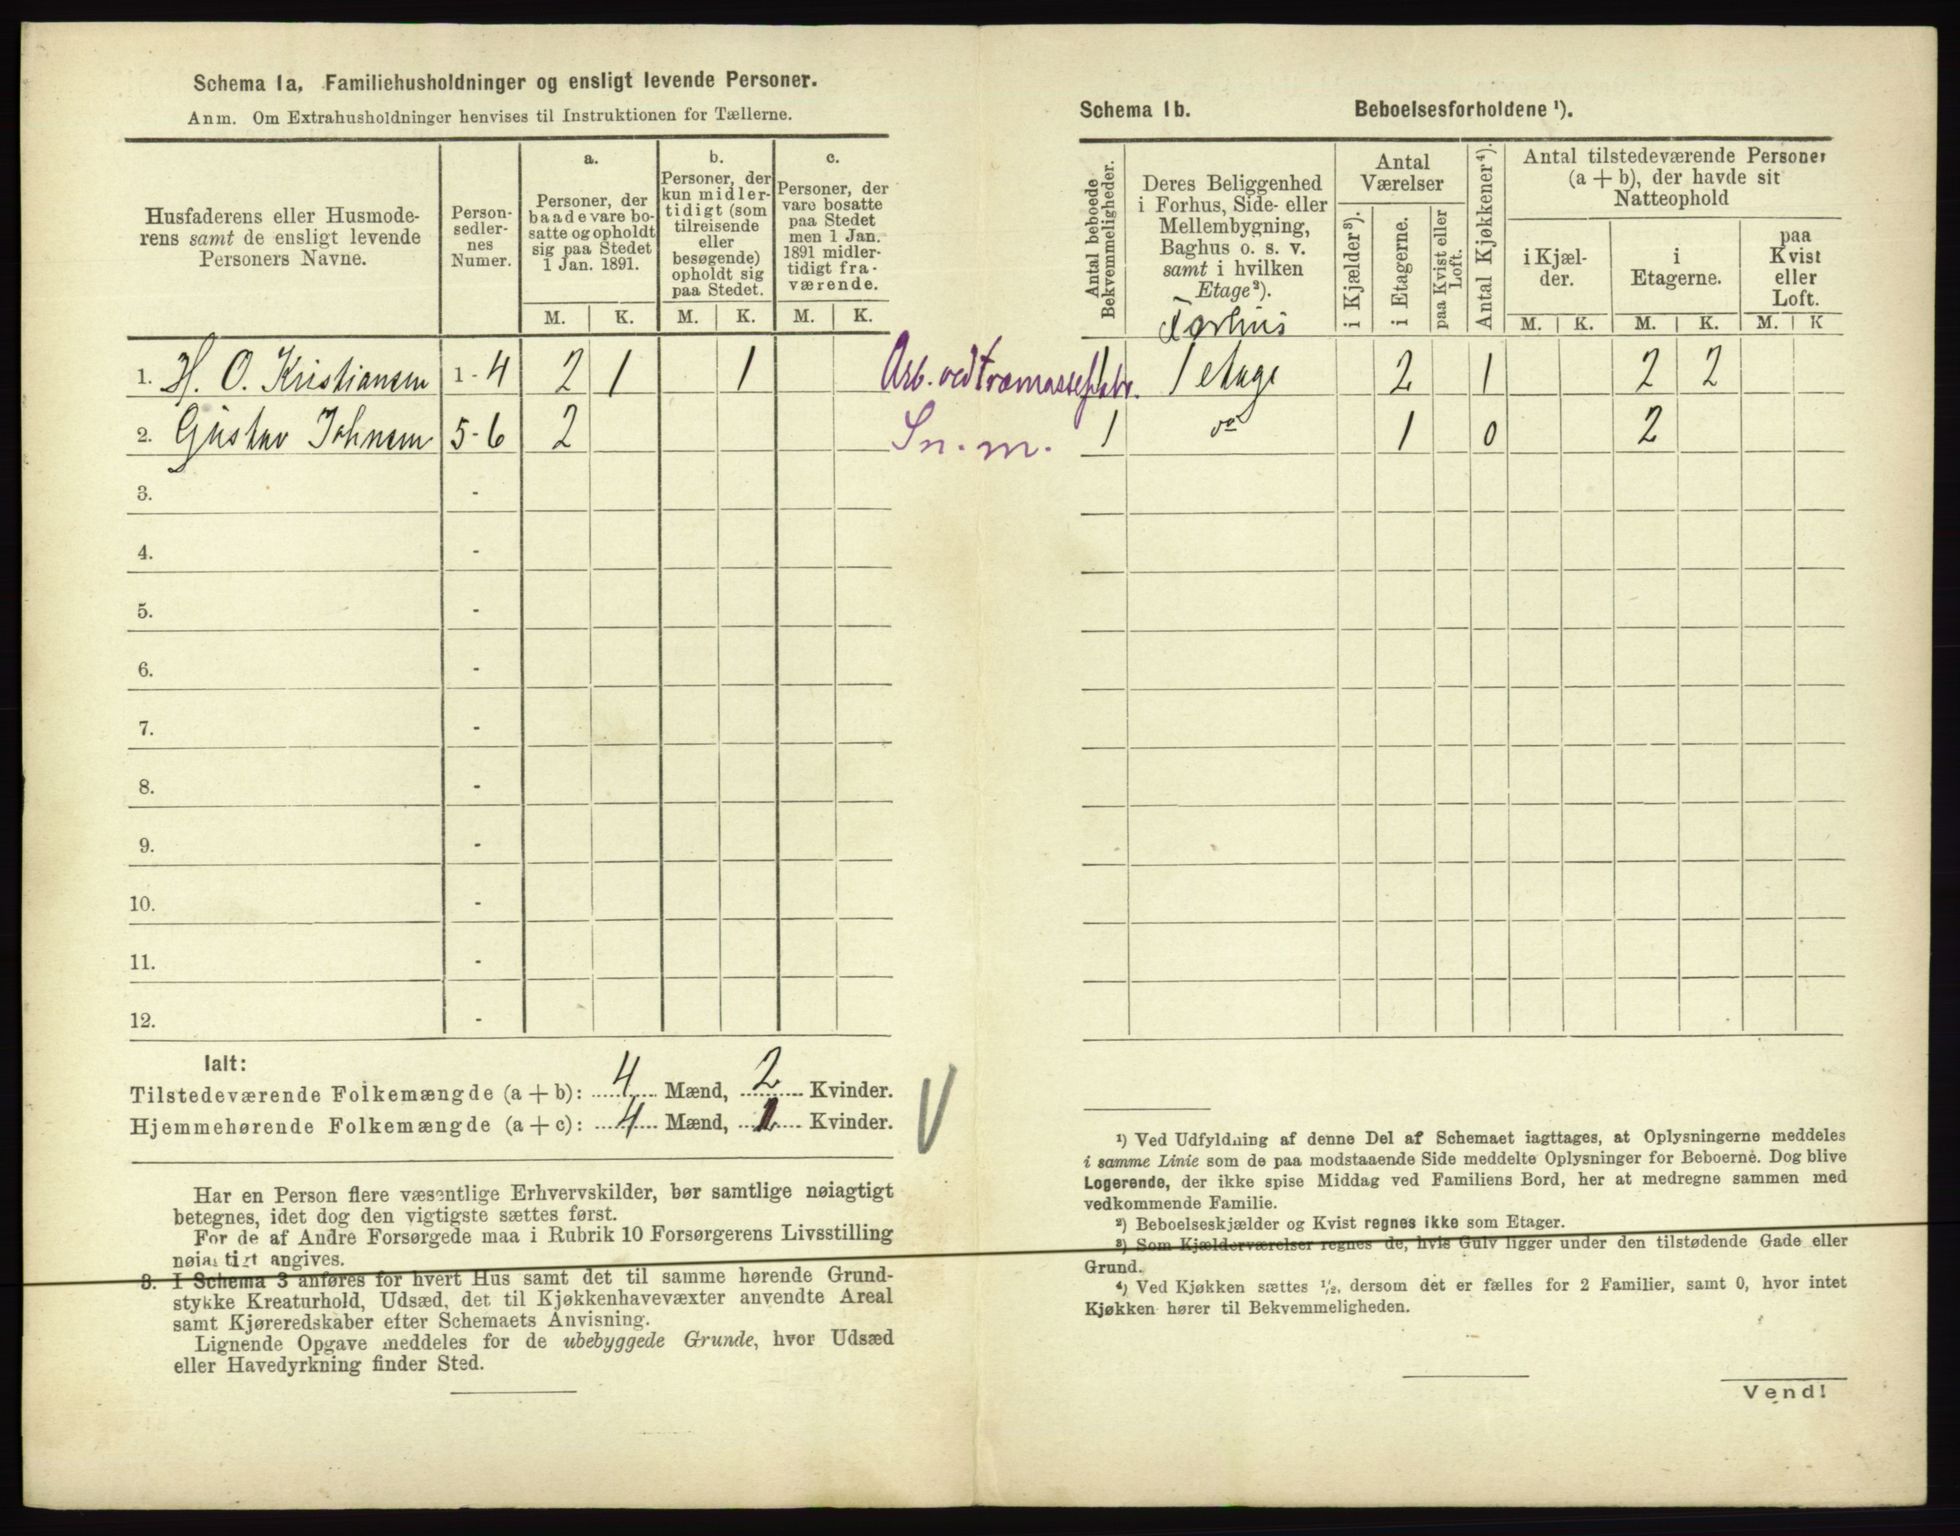 Schema 1a, Familiehusholdninger og ensligt levende Personer.
Anm. Om Extrahusholdninger henvises til Instruktionen for Tællerne.
Husfaderens eller Husmode-
rens samt de ensligt levende
Personers Navne.
Person-
sedler-
nes
Numer.
a.
Personer, der
baade vare bo-
satte og opholdt
sig paa Stedet
1 Jan. 1891.
b.
Personer, der
kun midler-
tidigt (som
tilreisende
eller
besøgende)
opholdt sig
paa Stedet.
c.
Personer, der
vare bosatte
paa Stedet
men 1 Jan.
1891 midler-
tidigt fra-
værende.
M. K. M. K. M. K.
1. H. O. Kristiansen 1-4 2 1 1
2. Gustav Johnsen 5-6 2
3. -
4. -
5. -
6. -
7. -
8. -
9. -
10. -
11. -
12. -
Ialt:
Tilstedeværende Folkemængde (a + b): 4 Mænd, 2 Kvinder.
Hjemmehørende Folkemængde (a + c): 4 Mænd, 1 Kvinder.
Har en Person flere væsentlige Erhvervskilder, bør samtlige nøiagtigt
betegnes, idet dog den vigtigste sættes først.
For de af Andre Forsørgede maa i Rubrik 10 Forsørgerens Livsstilling
nøiagtigt angives.
3. I Schema 3 anføres for hvert Hus samt det til samme hørende Grund-
stykke Kreaturhold, Udsæd, det til Kjøkkenhavevæxter anvendte Areal
samt Kjøreredskaber efter Schemaets Anvisning.
Lignende Opgave meddeles for de ubebyggede Grunde, hvor Udsæd
eller Havedyrkning finder Sted.
Schema 1b. Beboelsesforholdene ¹).
Antal beboede
Bekvemmeligheder.
Deres Beliggenhed
i Forhus, Side- eller
Mellembygning,
Baghus o. s. v.
samt i hvilken
Etage²).
Forhus
Antal
Værelser
i Kjælder³).
i Etagerne.
paa Kvist eller
Loft.
Antal Kjøkkener⁴).
Antal tilstedeværende Personer
(a + b), der havde sit
Natteophold
i Kjæl-
der.
i
Etagerne.
paa
Kvist
eller
Loft.
M. K. M. K. M. K
Arb. ved træmassefabr. 1 1 etage 2 1 2 2
Sn. m. 1 do 1 0 2
¹) Ved Udfyldning af denne Del af Schemaet iagttages, at Oplysningerne meddeles
i samme Linie som de paa modstaaende Side meddelte Oplysninger for Beboerne. Dog blive
Logerende, der ikke spise Middag ved Familiens Bord, her at medregne sammen med
vedkommende Familie.
²) Beboelseskjælder og Kvist regnes ikke som Etager.
³) Som Kjælderværelser regnes de, hvis Gulv ligger under den tilstødende Gade eller
Grund.
⁴) Ved Kjøkken sættes ¹/₂, dersom det er fælles for 2 Familier, samt 0, hvor intet
Kjøkken hører til Bekvemmeligheden.
Vend!